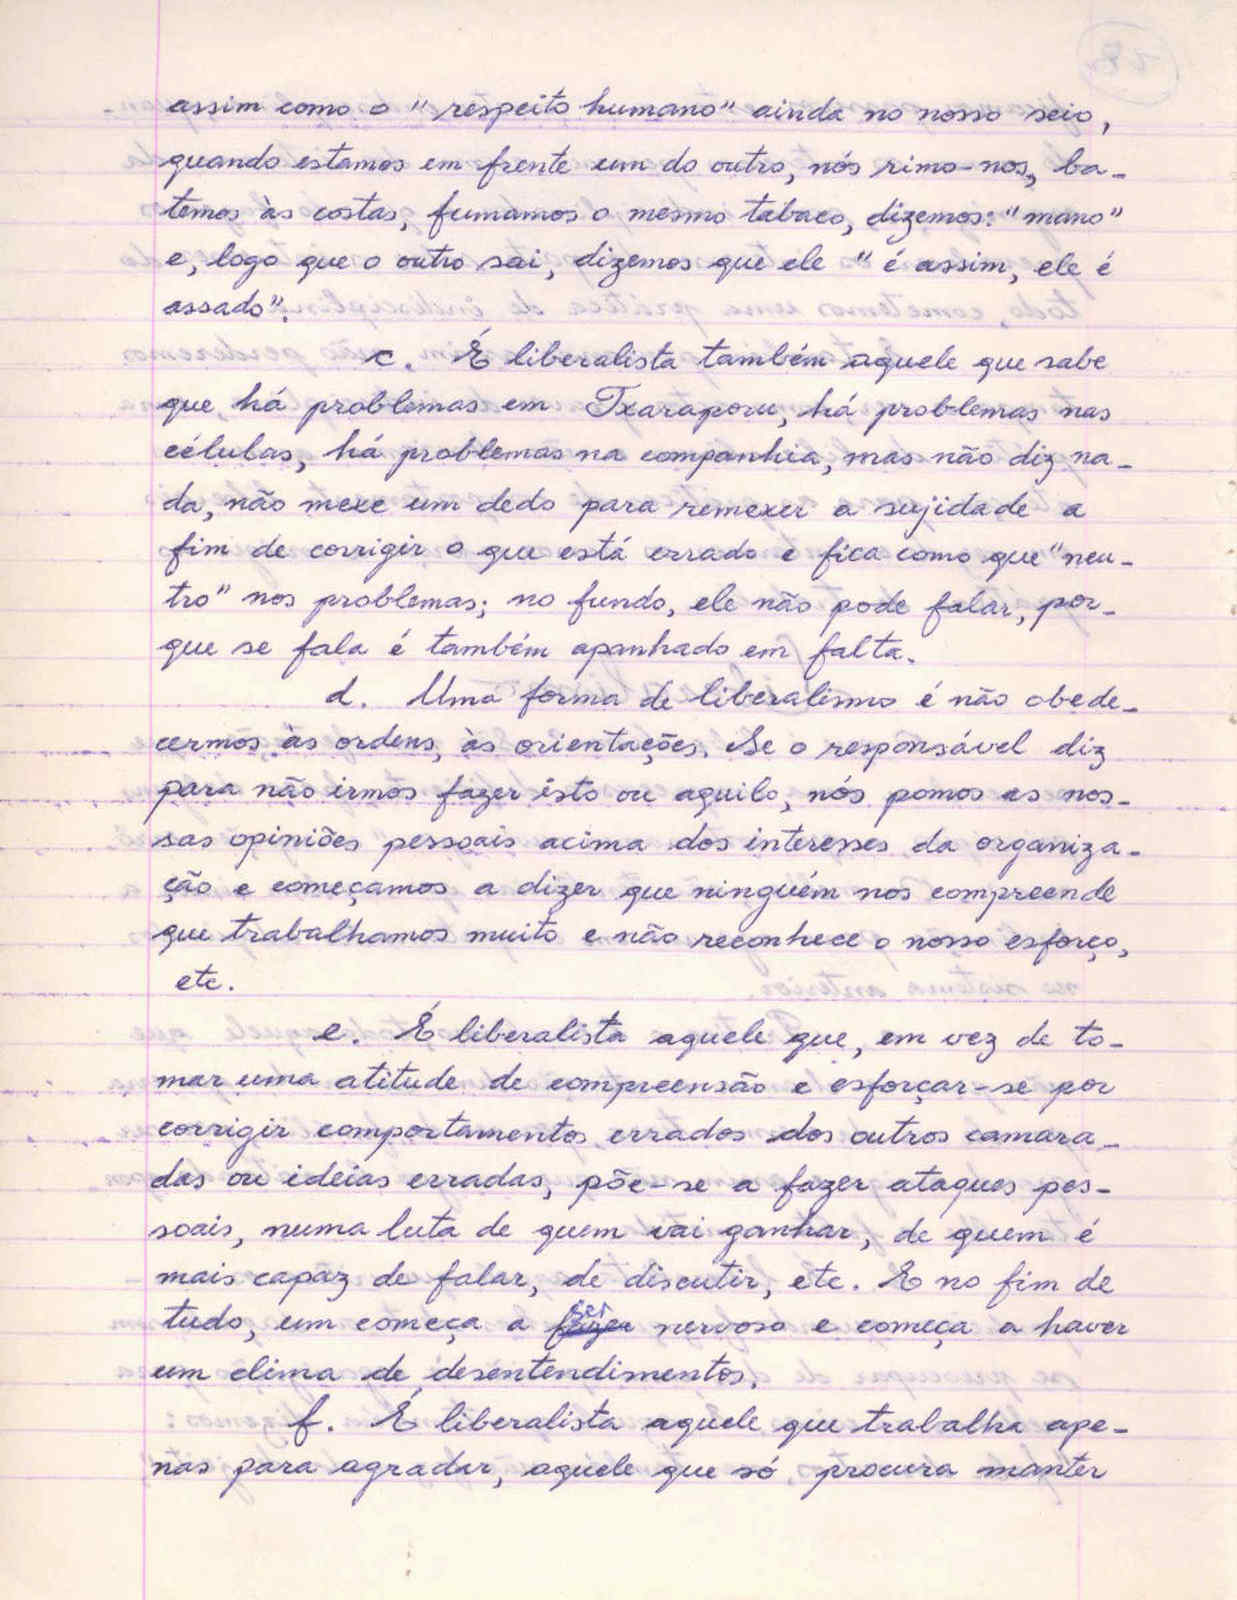 assim como o "respeito humano" ainda no nosso seio,
quando estamos em frente um do outro, nós rimo-nos, ba-
temos às costas, fumamos o mesmo tabaco, dizemos: "mano"
e, logo que o outro sai, dizemos que ele "é assim, ele é
assado".
c. É liberalista também aquele que sabe
que há problemas em Txaraporu, há problemas nas
células, há problemas na companhia, mas não diz na-
da, não mexe um dedo para remexer a sujidade a
fim de corrigir o que está errado e fica como que "neu-
tro" nos problemas; no fundo, ele não pode falar, por-
que se fala é também apanhado em falta.
d. Uma forma de liberalismo é não obede-
cermos às ordens, às orientações. Se o responsável diz
para não irmos fazer isto ou aquilo, nós pomos as nos-
sas opiniões pessoais acima dos interesses da organiza-
ção e começamos a dizer que ninguém nos compreende
que trabalhamos muito e não reconhece o nosso esforço,
etc.
e. É liberalista aquele que, em vez de to-
mar uma atitude de compreensão e esforçar-se por
corrigir comportamentos errados dos outros camara-
das ou ideias erradas, põe-se a fazer ataques pes-
soais, numa luta de quem vai ganhar, de quem é
mais capaz de falar, de discutir, etc. E no fim de
tudo, um começa a ser nervoso e começa a haver
um clima de desentendimentos.
f. É liberalista aquele que trabalha ape-
nas para agradar, aquele que só procura manter